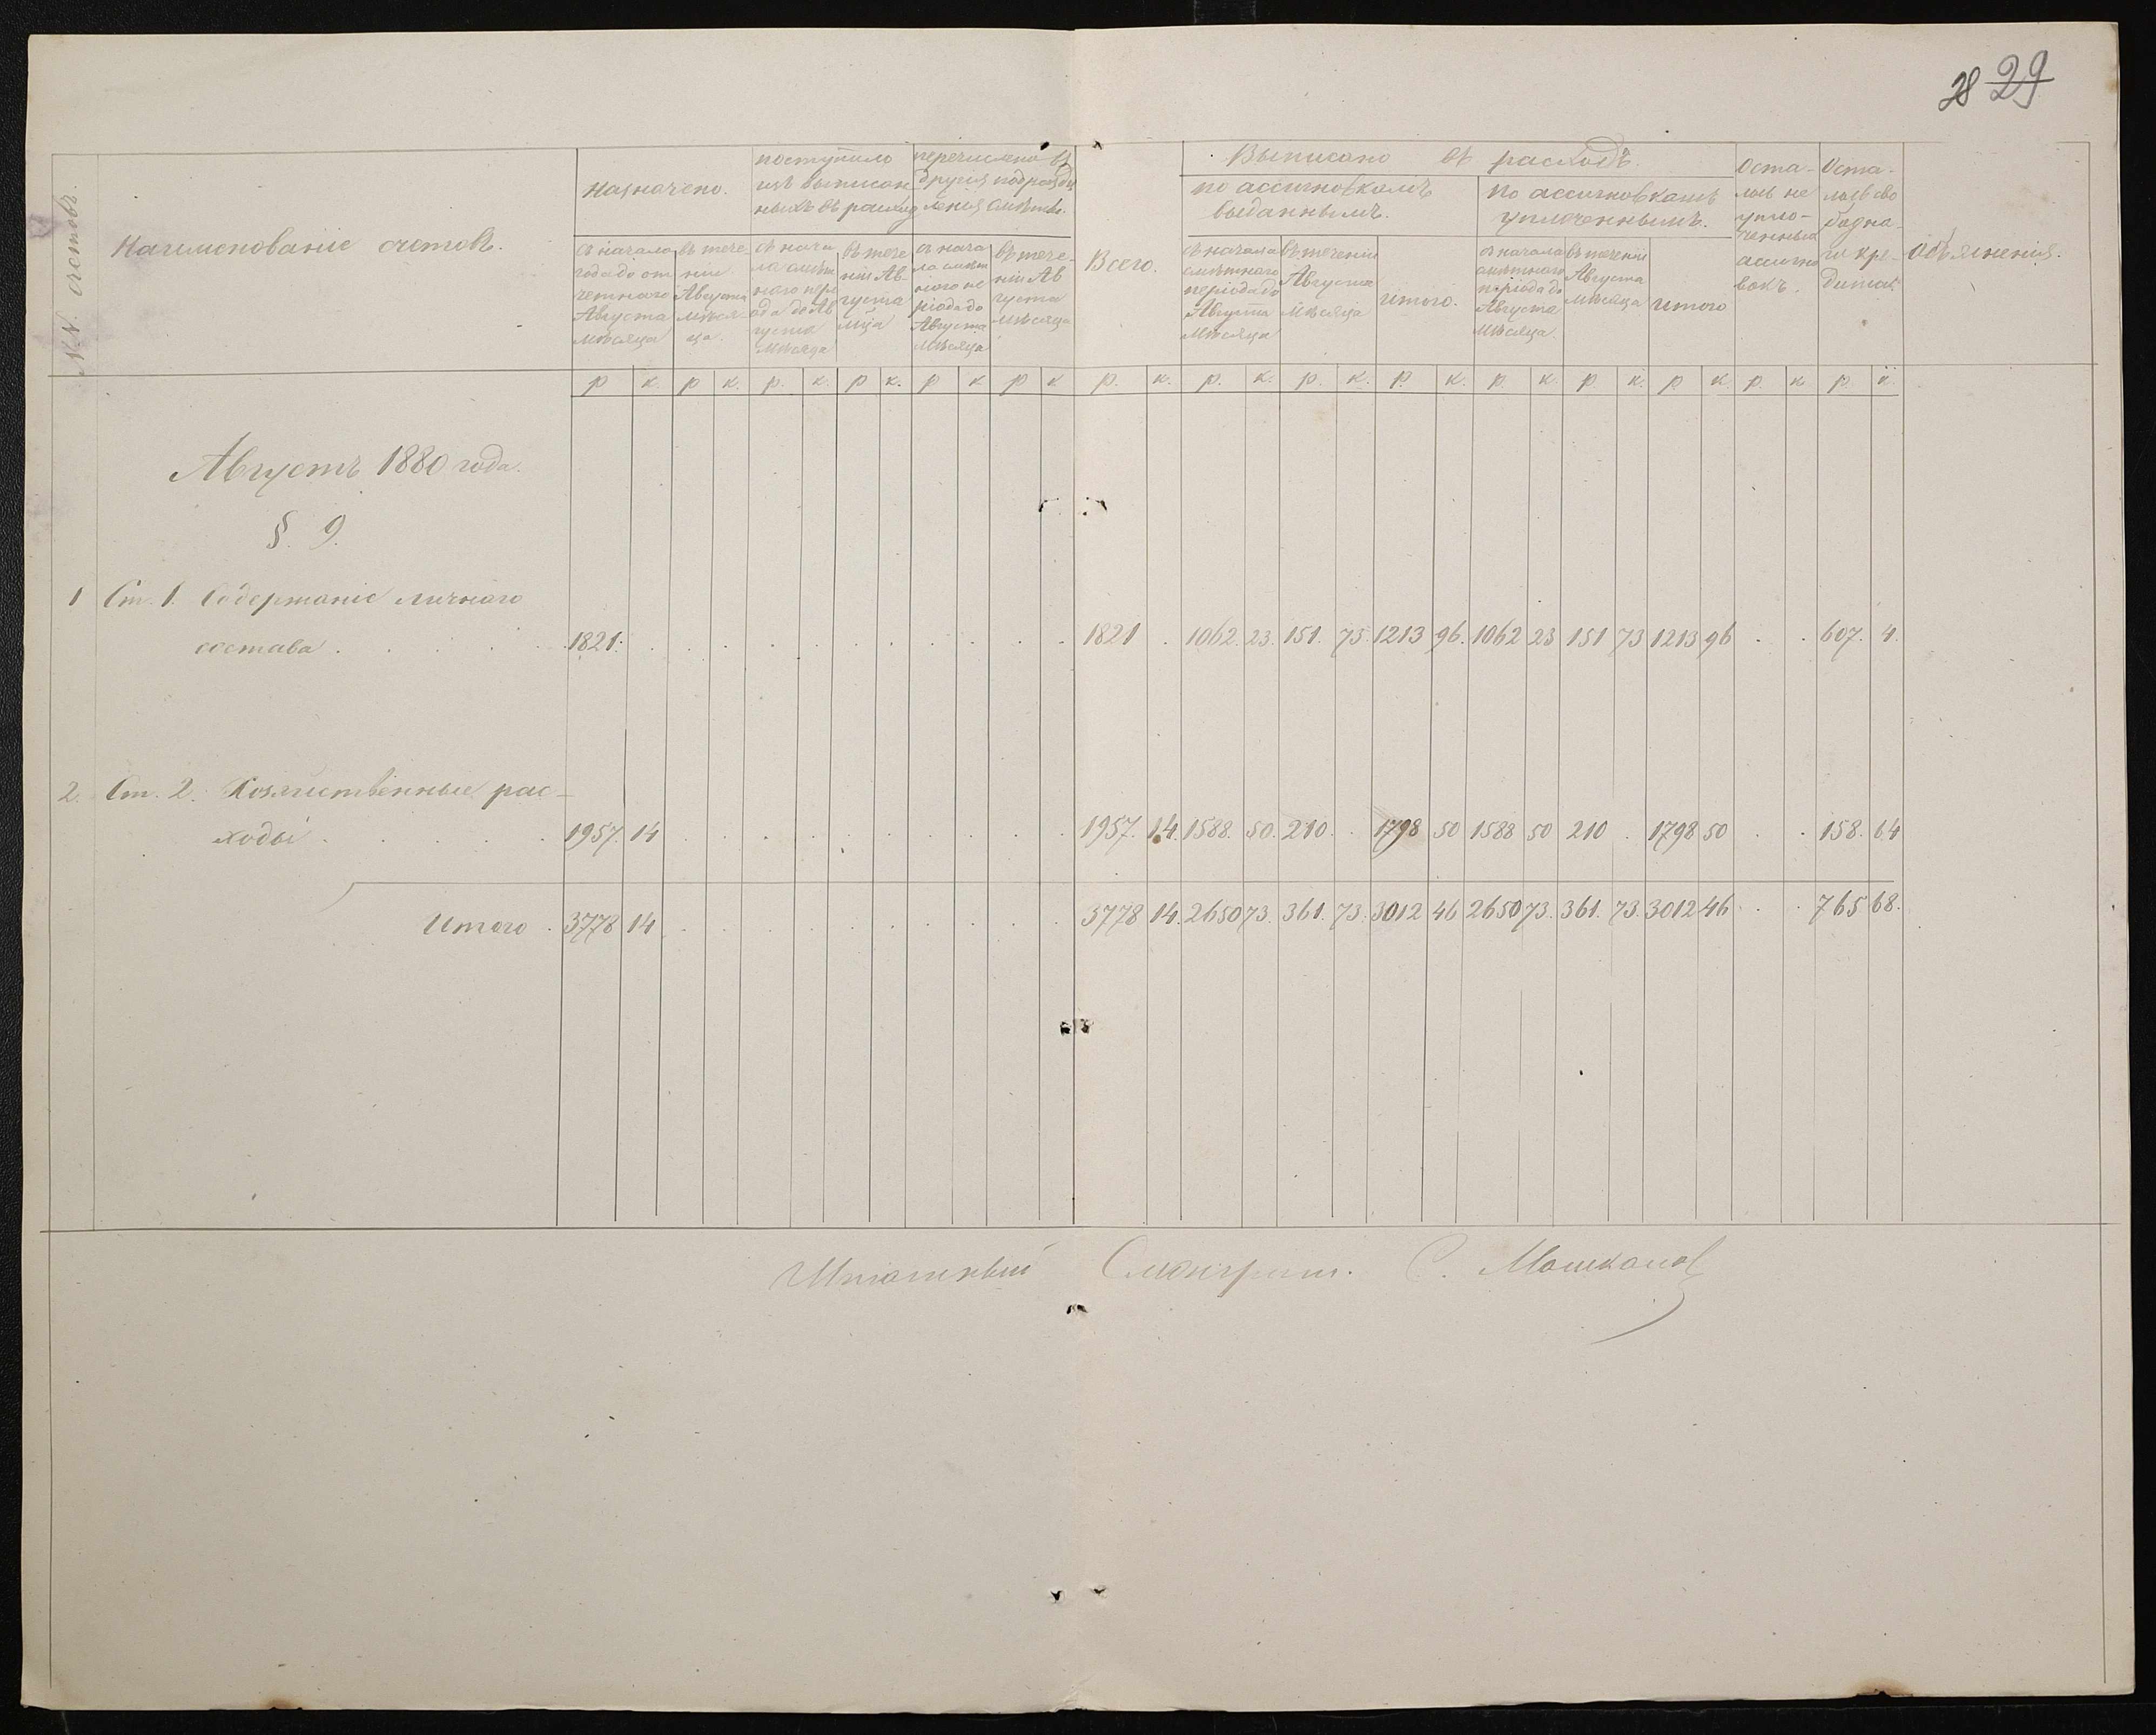 28 29
№№ счетовъ.
Наименованіе счетовъ.
Назначено.
съ начала
года до от
четнаго
Августа
мѣсяца
въ тече-
нии
Августа
мѣся-
ца.
поступило
изъ выписан
ныхъ въ расход
съ нача
ла смѣт
наго пері
ода до Ав
густа
мѣсяца
въ тече
ніи Ав-
густа
мѣца
перечислено въ
другія подраздѣ
ленія смѣты.
съ нача
ла смѣт
наго пе
ріода до
Августа
мѣсяца
въ тече-
ніи Ав
густа
мѣсяца
Всего.
Выписано въ расходъ.
по ассигновкамъ
выданнымъ.
съ начала
смѣтнаго
періода до
Августа
мѣсяца
въ теченіи
Августа
мѣсяца
итого.
по ассигновкамъ
уплоченнымъ.
съ начала
смѣтнаго
періода до
Августа
мѣсяца.
въ теченіи
Августа
мѣсяца
итого
Оста-
лось не
упло-
ченныхъ
ассигно
вокъ.
Оста-
лось сво
бодна-
го кре-
дита.
Объясненія.
р к. р к. р. к. р к. р к р к р. к. р. к. р. к. р. к. р. к. р. к. р к р. к р. к.
Августъ 1880 года.
§. 9.
1 Ст. 1. Содержаніе личнаго
состава . . . . . 1821. . . . . . . . . . . 1821 . 1062. 23. 151. 73. 1213 96. 1062 23 151 73 1213 96 . . 607. 4.
2. Ст. 2. Хозяйственные рас-
ходы . . . . . 1957. 14 . . . . . . . . . . 1957. 14. 1588. 50. 210. . 1798 50 1588 50 210 . 1798 50 . . 158. 64
Итого . 3778 14 . . . . . . . . . . 3778 14. 2650 73. 361. 73. 3012 46 2650 73. 361. 73. 3012 46 . . 765 68.
Штатный Смотрит. С. Машканов